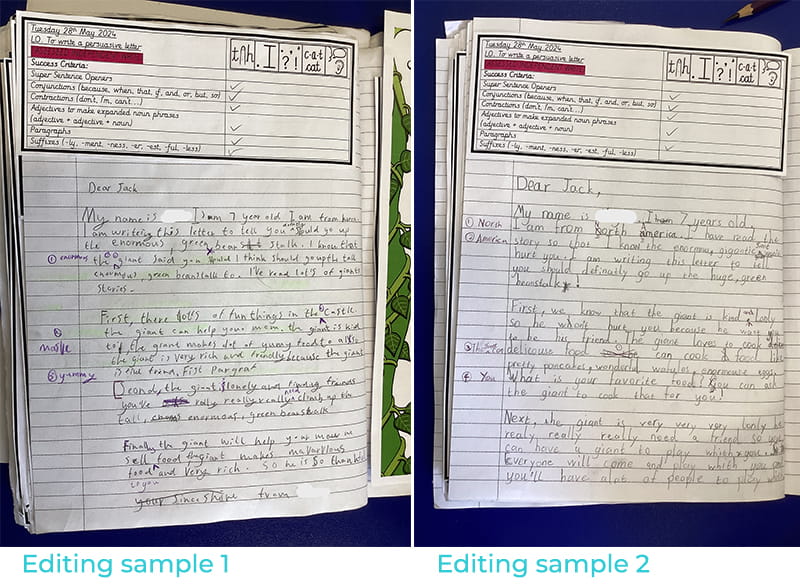 Tuesday 28th May 2024
LO. To write a persuasive letter
Success Criteria:
Super Sentence Openers
Conjunctions (because, when, that, if, and, or, but, so)
Contractions (don't, I'm, can't...)
Adjectives to make expanded noun phrases
(adjective + adjective + noun)
Paragraphs
Suffixes (-ly, -ment, -ness, -er, -est, -ful, -less)
. I
? !
c-a-t
cat
Dear Jack
My name is I am 7 year old I am from
am writing this letter to tell you should go up
the enormous, green stalk. I know that
① enormous the giant said you I think should go up the tall
enormous, green beanstalk to. I've read lots of giants
stories.
First, there lots of fun things in the castle.
the giant can help your mom. the giant is kid
to the giant makes dot of yumy food to
the giant is very rich and frendly because the giant
③ yummy is
the giant lonely and frends
you've rally really really need climb up the
tall, enormous, green beanstalk
Finally the giant will help your mom
sell food the giant makes
food and very rich. So he is so
from
Editing sample 1
Tuesday 28th May 2024
LO. To write a persuasive letter
Success Criteria:
Super Sentence Openers
Conjunctions (because, when, that, if, and, or, but, so)
Contractions (don't, I'm, can't...)
Adjectives to make expanded noun phrases
(adjective + adjective + noun)
Paragraphs
Suffixes (-ly, -ment, -ness, -er, -est, -ful, -less)
. I
? !
c-a-t
cat
Dear Jack,
My name is I am 7 years old,
① North I am from north america. I have read the
② American story so that I know the enormous, gigantic
hurt you. I am writing this letter to tell
you should definatly go up the huge, green
beanstalk!
First, we know that the giant is kind and lonly
so he won't hurt you because he want you
to be his friend. The giant loves to cook
delicouse food can cook food like
pretty pancakes, wonderful wafules, enormouse eggs,
④ You What is your favorite food? You can ask
the giant to cook that for you!
Next, the giant is very very very lonly he
realy really really need a friend so you
can have a giant to play which you.
Everyone will come and play which you and
you'll have alot of people to play
Editing sample 2